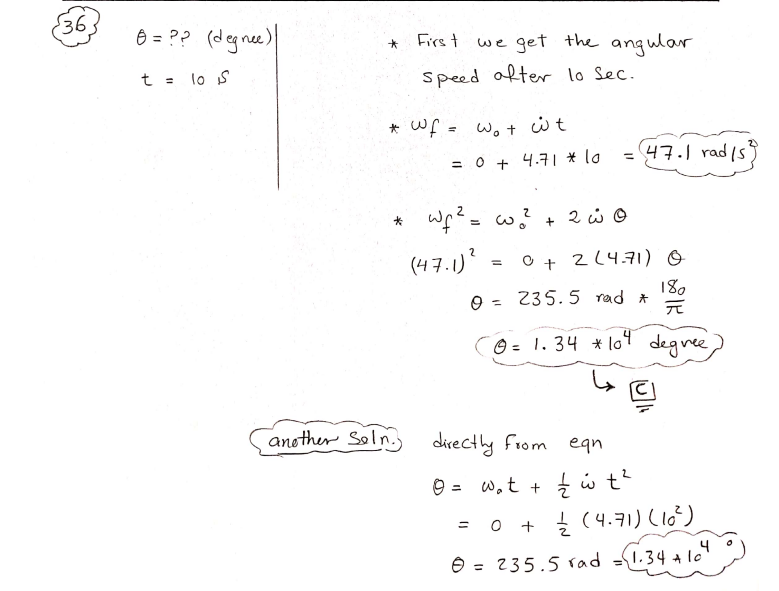 36
θ = ?? (degree)
t = 10 s
* First we get the angular
speed after 10 sec.
* ωf = ω₀ + ω̇ t
= 0 + 4.71 * 10 = 47.1 rad/s²
* ωf² = ω₀² + 2 ω̇ θ
(47.1)² = 0 + 2 (4.71) θ
θ = 235.5 rad * 180/π
θ = 1.34 * 10⁴ degree
↳ C
another Soln. directly From eqn
θ = ω₀t + ½ ω̇ t²
= 0 + ½ (4.71) (10²)
θ = 235.5 rad = 1.34 * 10⁴ °